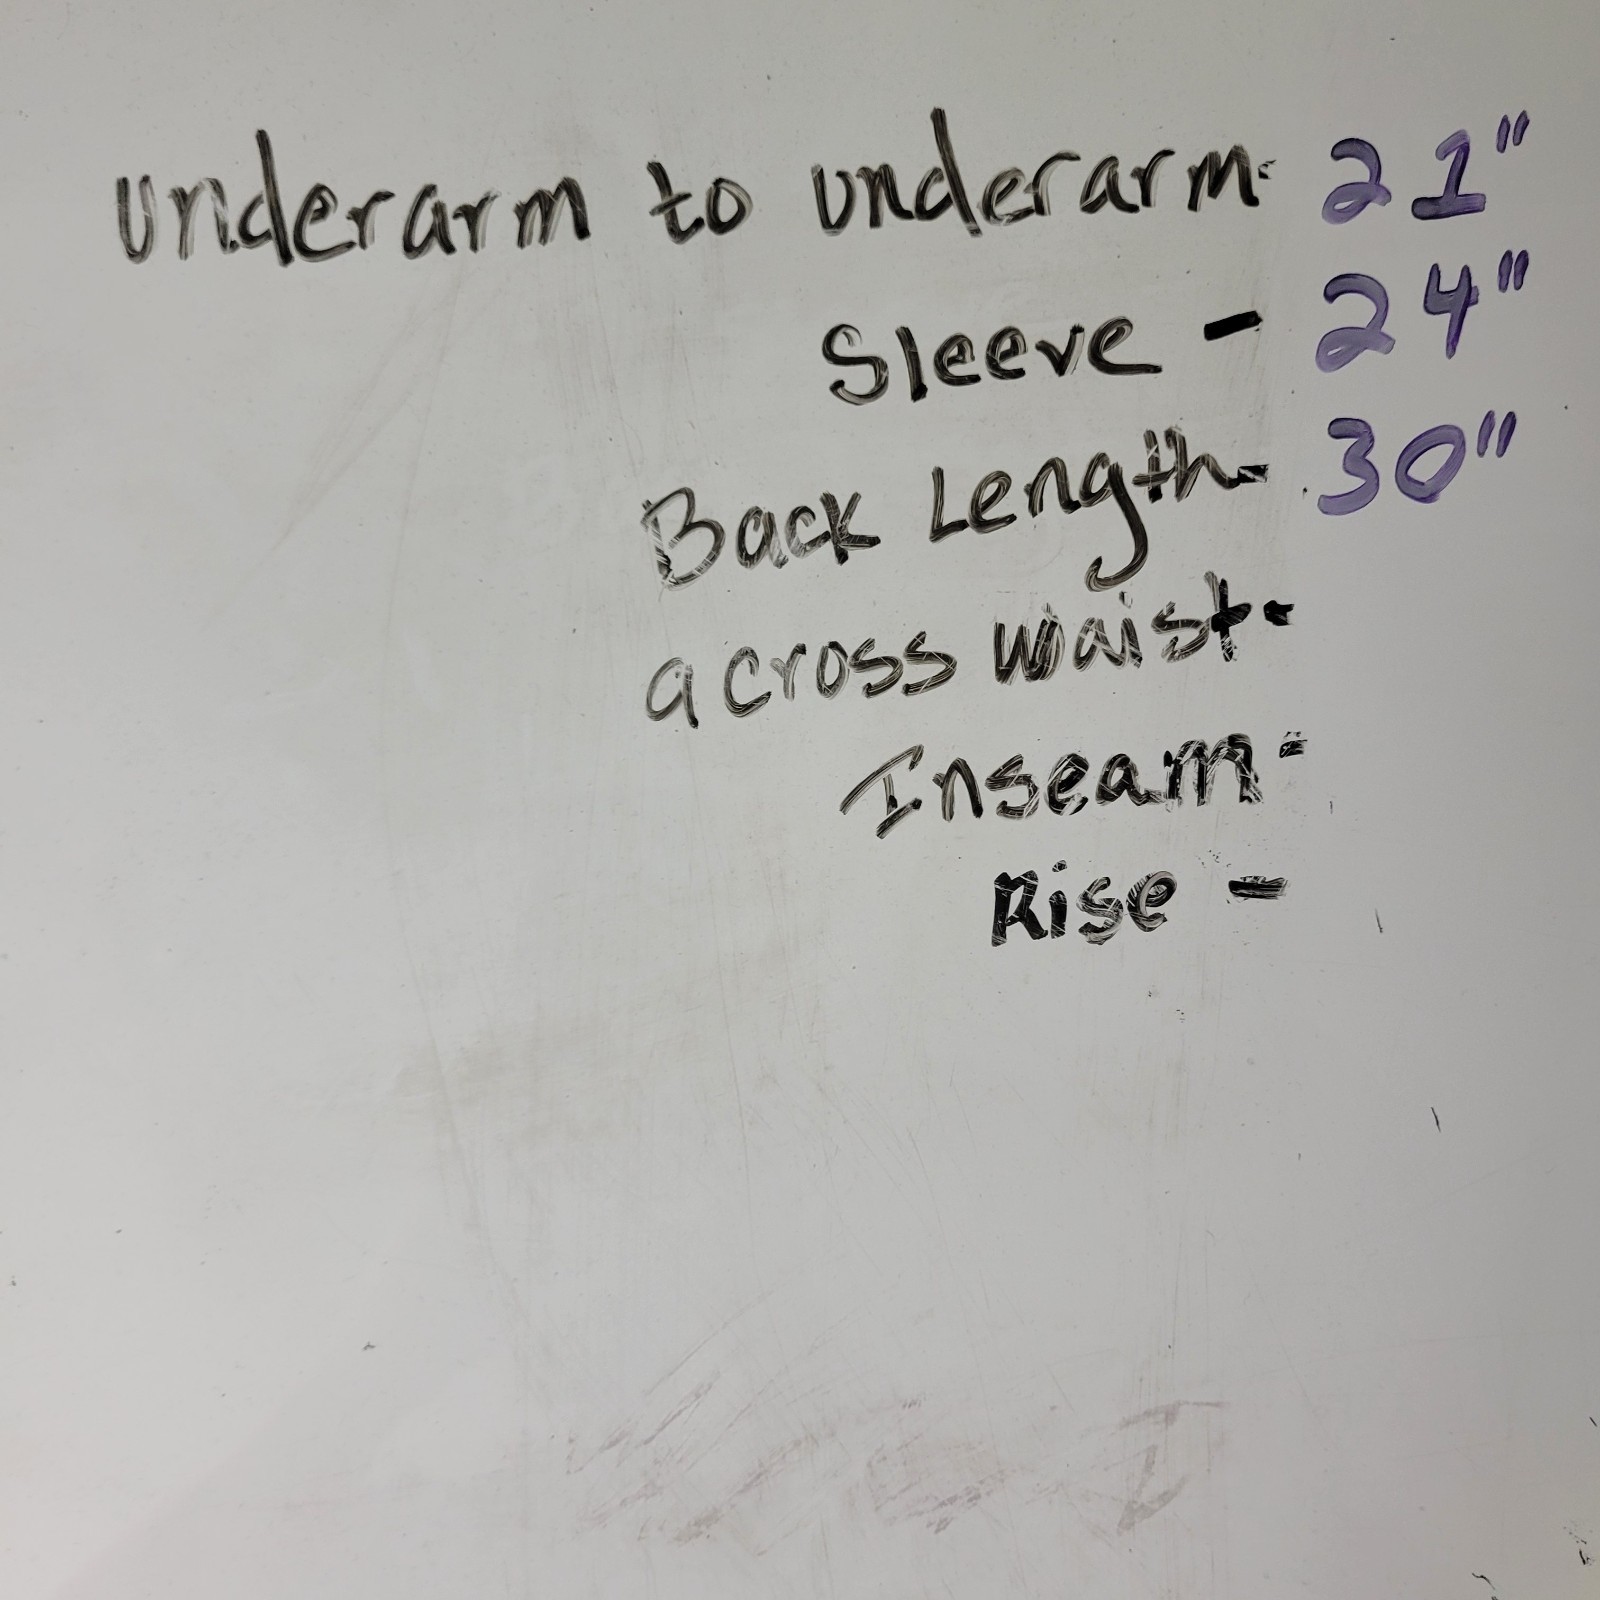 underarm to underarm- 21"
Sleeve - 24"
Back Length- 30"
across waist-
Inseam-
Rise -